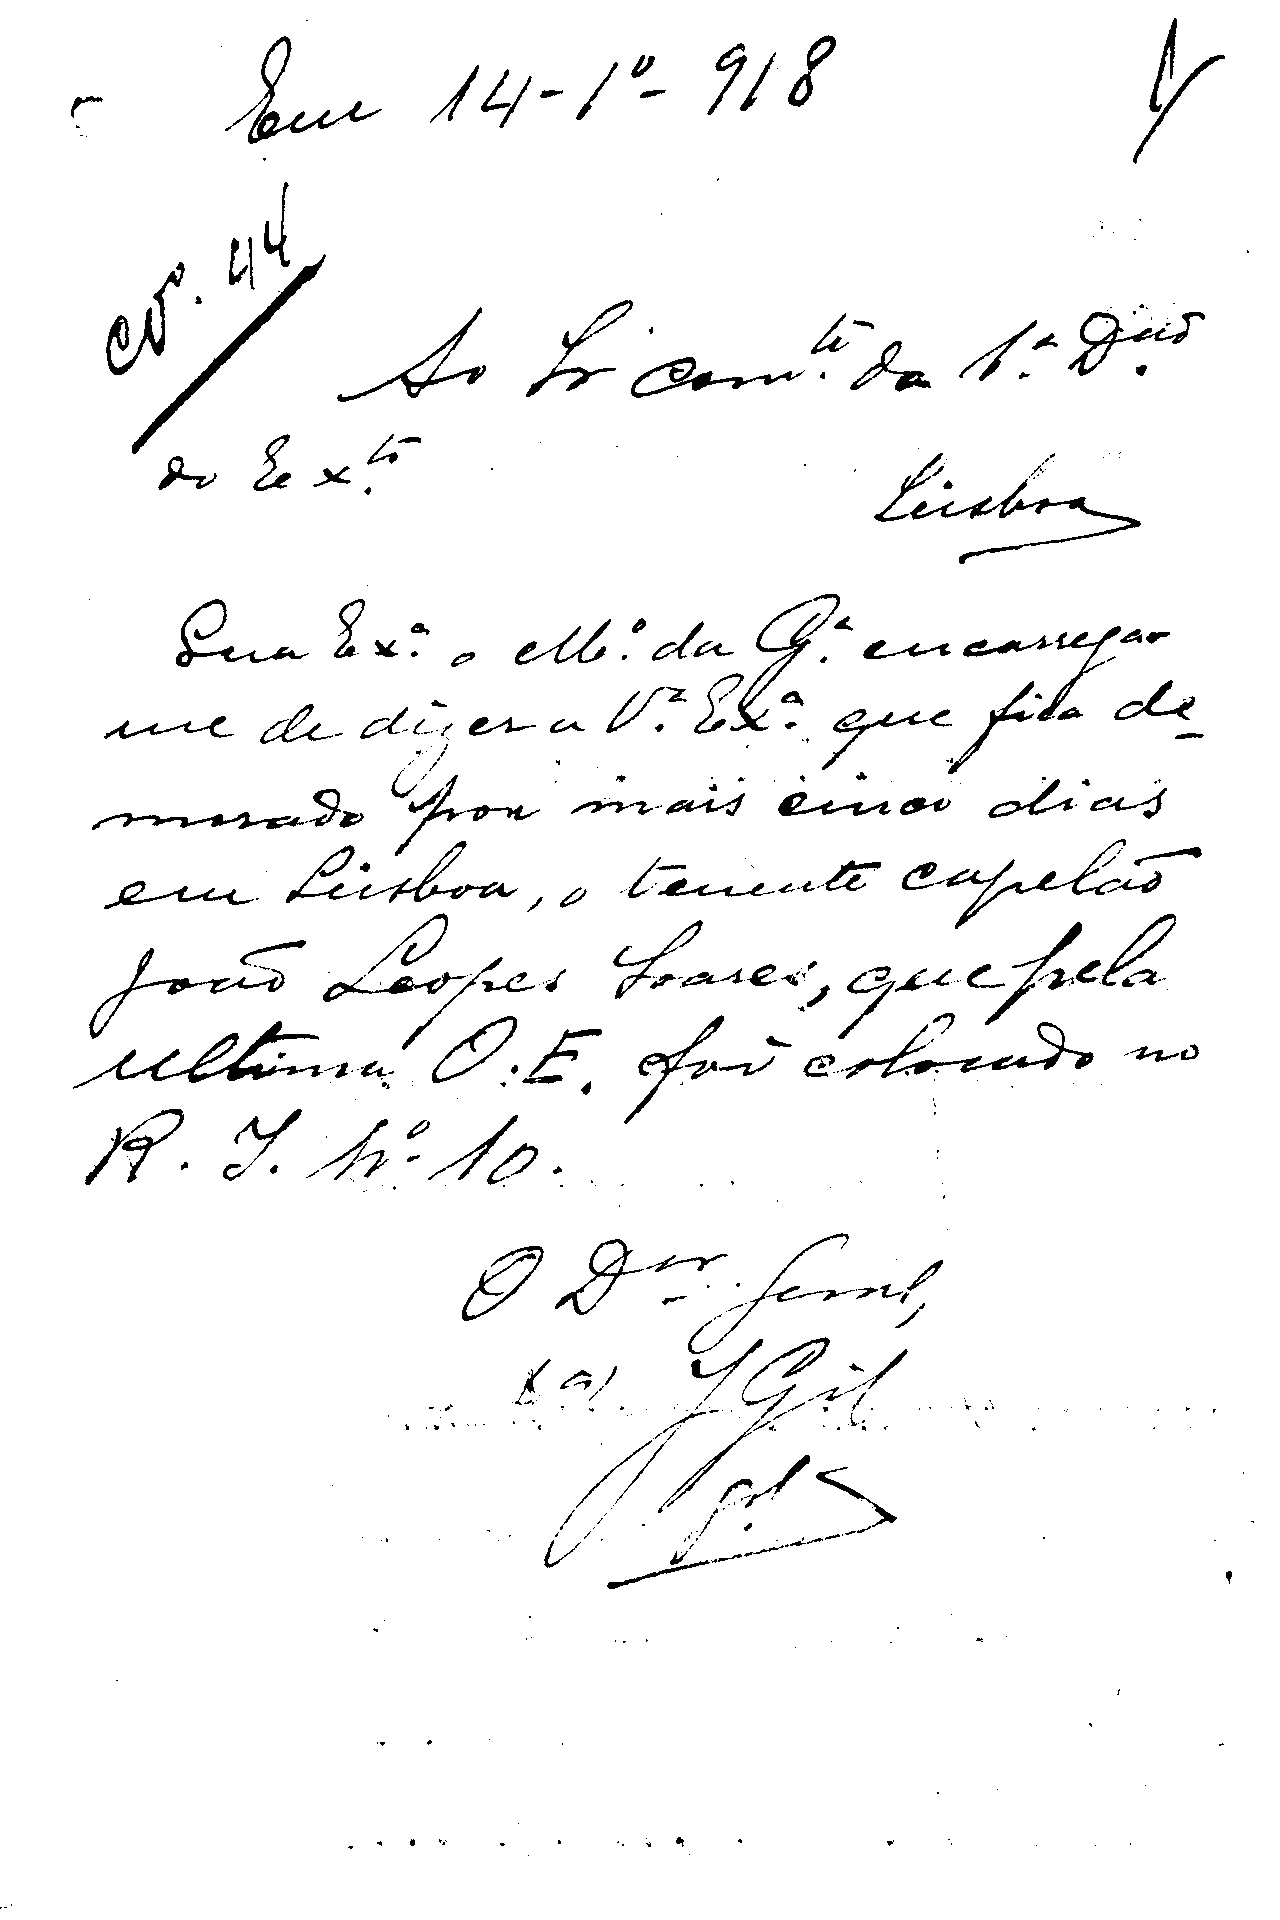 Em 14-1º-918
Nº. 44
Ao Sr com.te da 1.ª D.ão
do Ex.to
Lisboa
Sua Ex.ª o M.º da G.ª encarrega-
me de dizer a V.ª Ex.ª que fica de-
morado por mais cinco dias
em Lisboa, o tenente capelão
João Lopes Soares, que pela
ultima O.E. foi colocado no
R. I. nº 10.
O D.or Geral,
J Gil
g.al